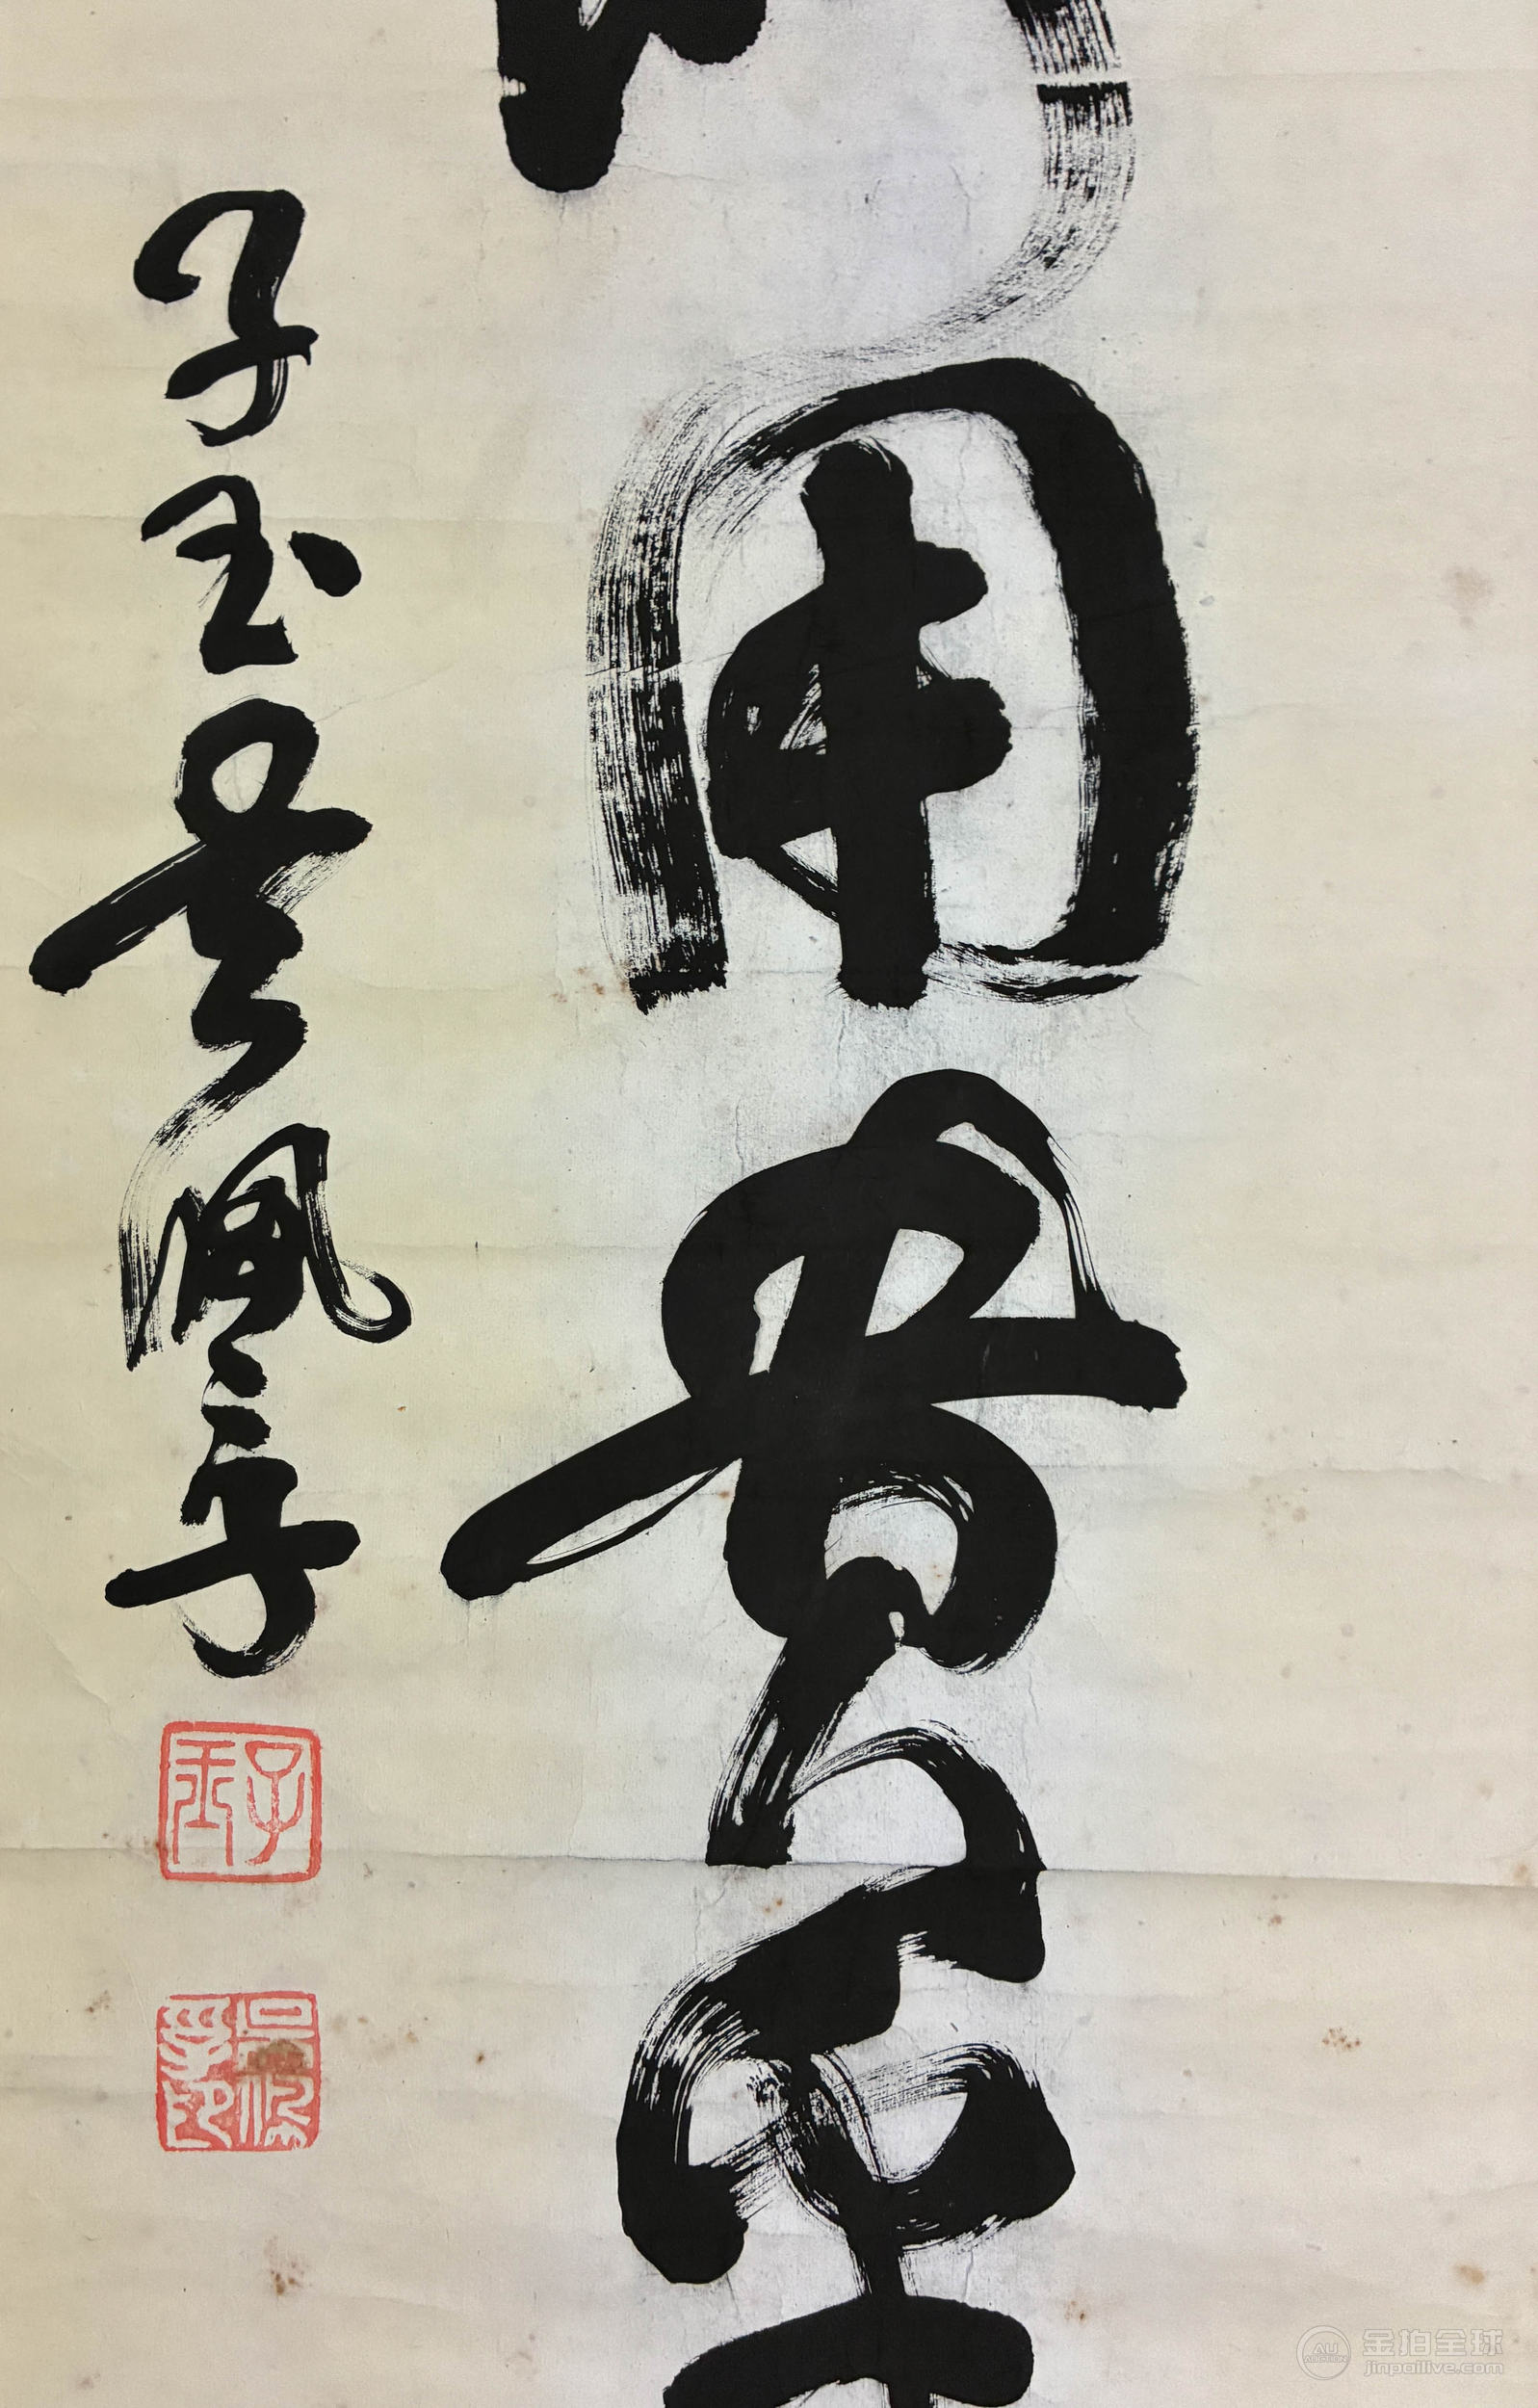 用貴
子玉吳佩孚
子玉
吳佩孚印
AU
金拍全球
jinpailive.com